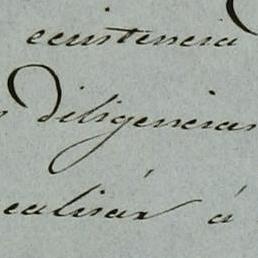 ecsistencia
diligencias
ealisár á